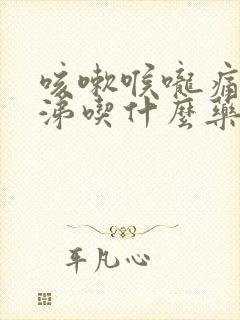 咳嗽喉嚨痛
涕喫什麼藥
平凡心